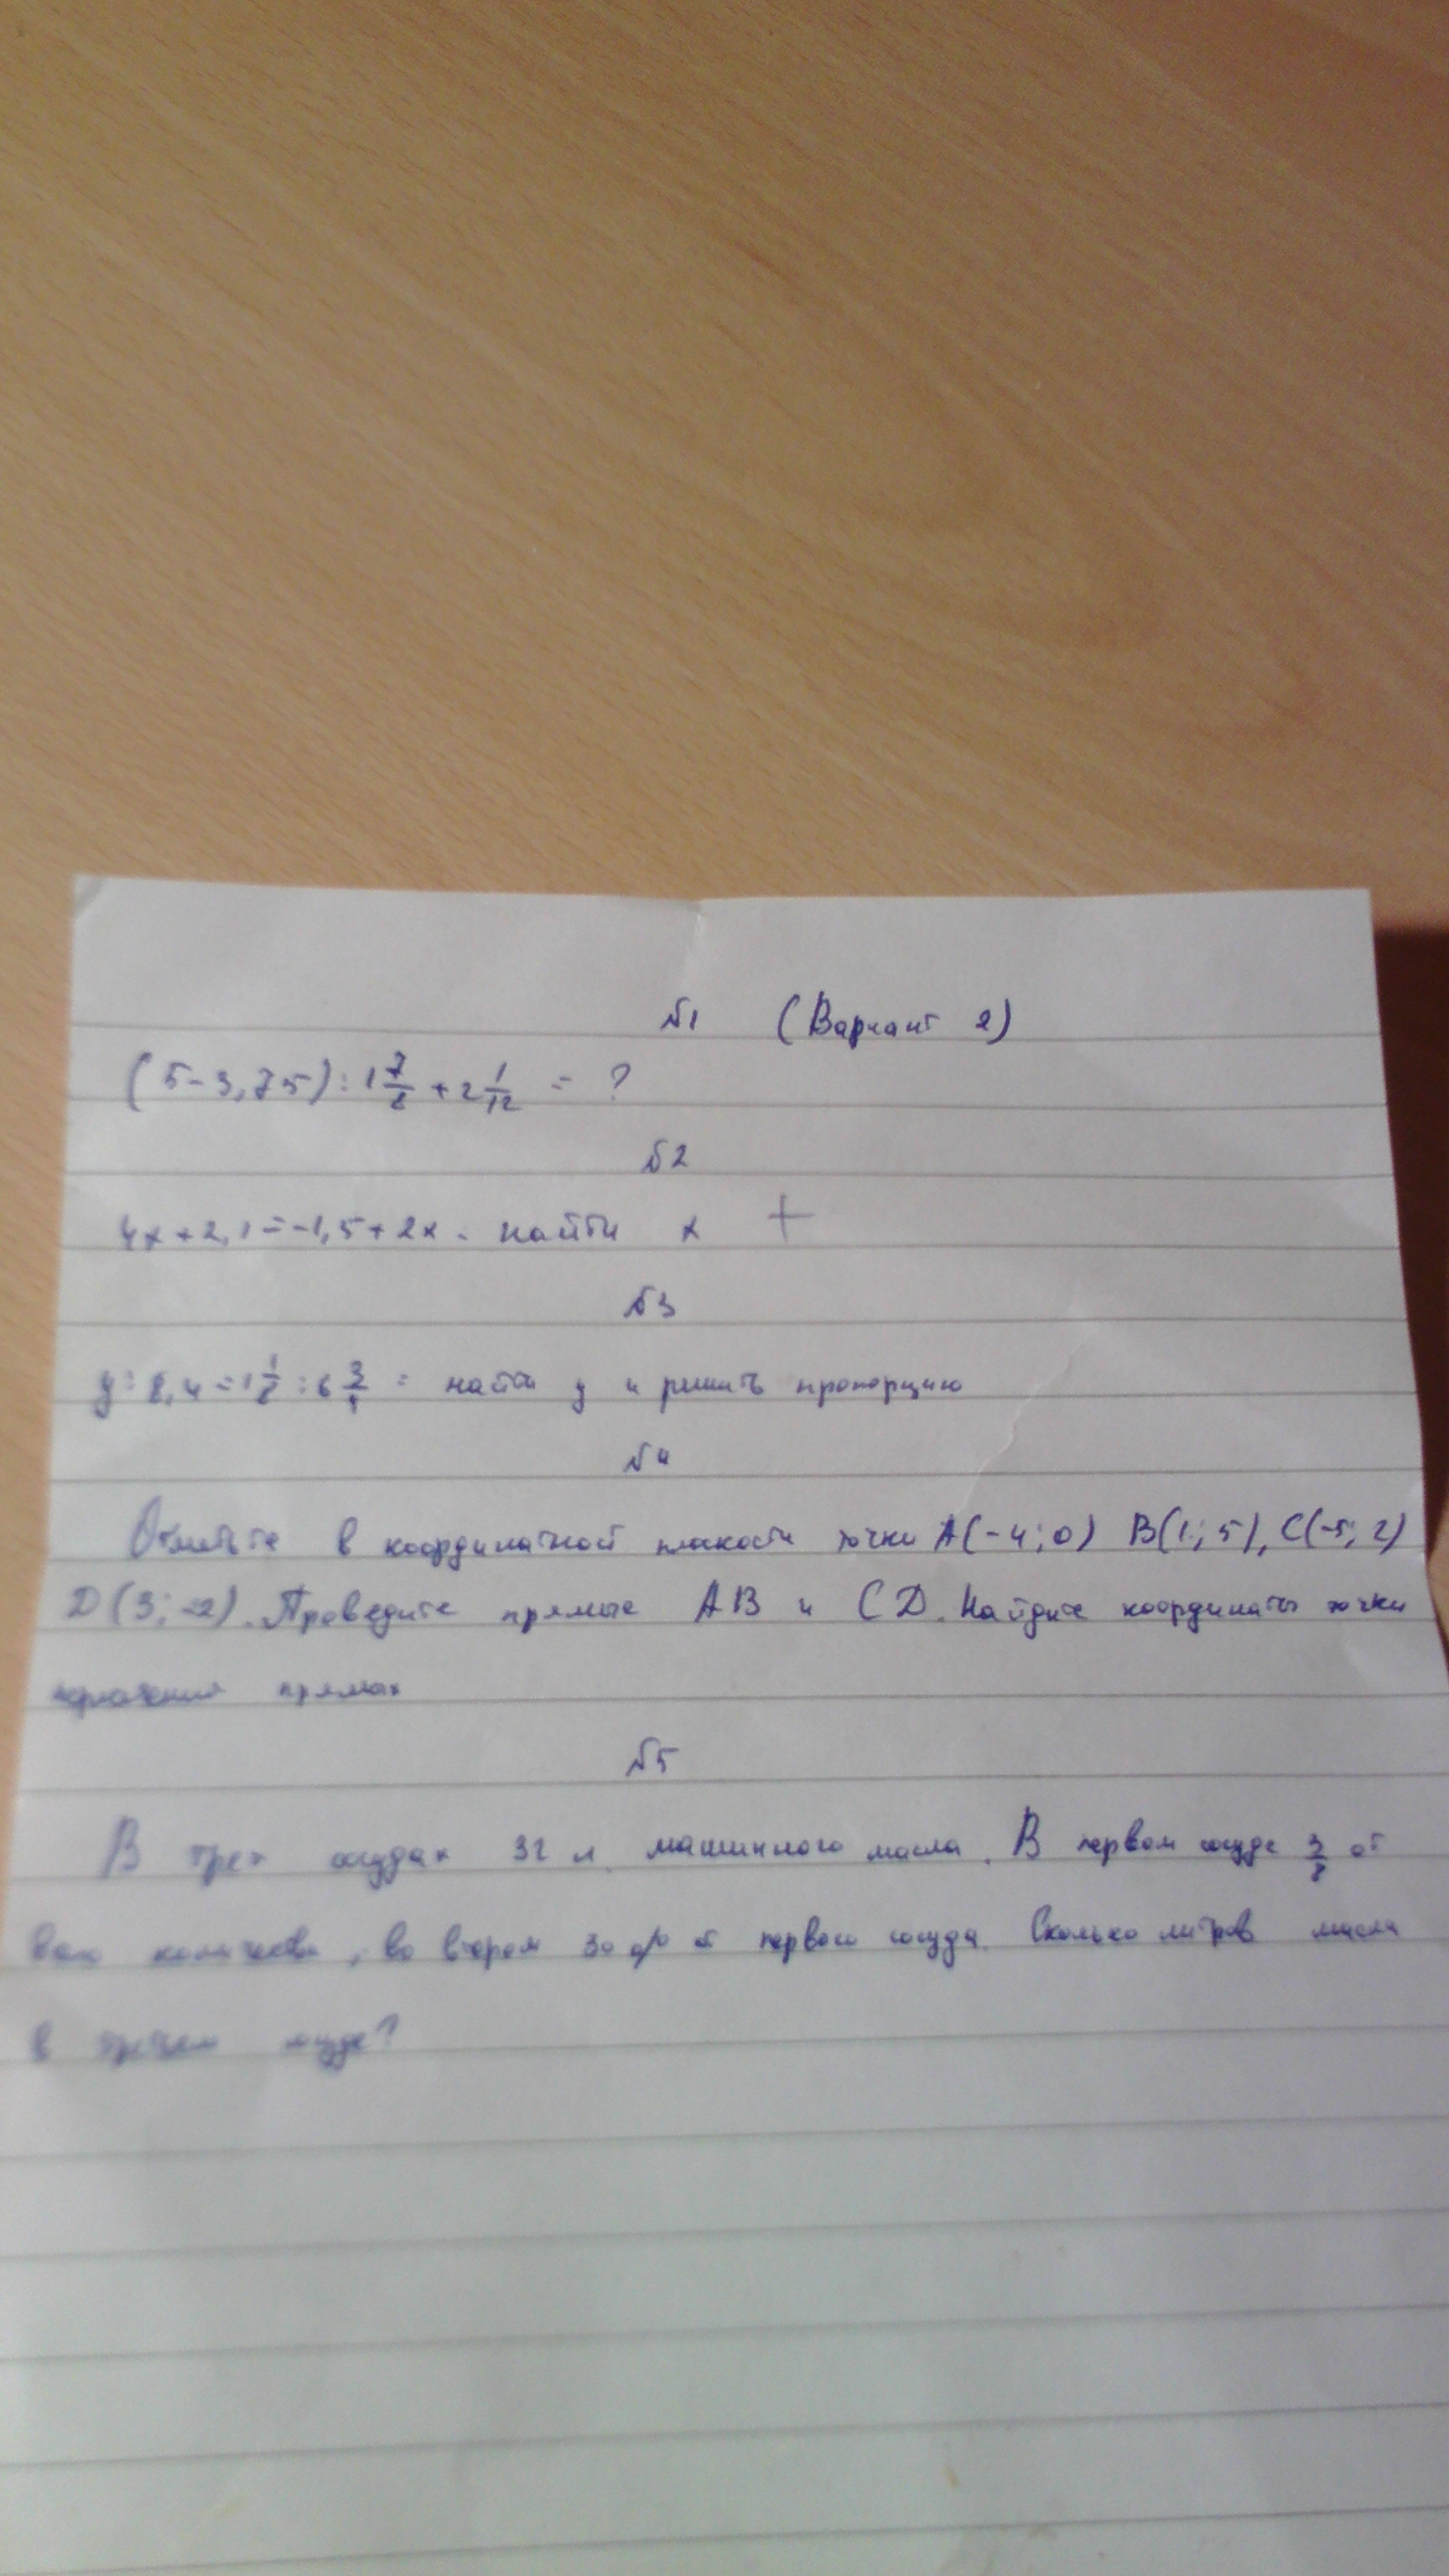 №1 (Вариант 2)
(5-3,75):1 7/8+2 1/12 = ?
№2
4x+2,1=-1,5+2x. найти x +
№3
y:8,4=1 1/8:6 3/4 = найти y и решить пропорцию
№4
Отметьте в координатной плоскости точки A(-4;0) B(1;5), C(-5;2)
D(3;-2). Проведите прямые AB и CD. Найдите координаты точки
прямых
№5
В трех сосудах 32 л. машинного масла. В первом сосуде 3/8 от
, во втором 30% от первого сосуда. Сколько литров масла
в третьем сосуде?